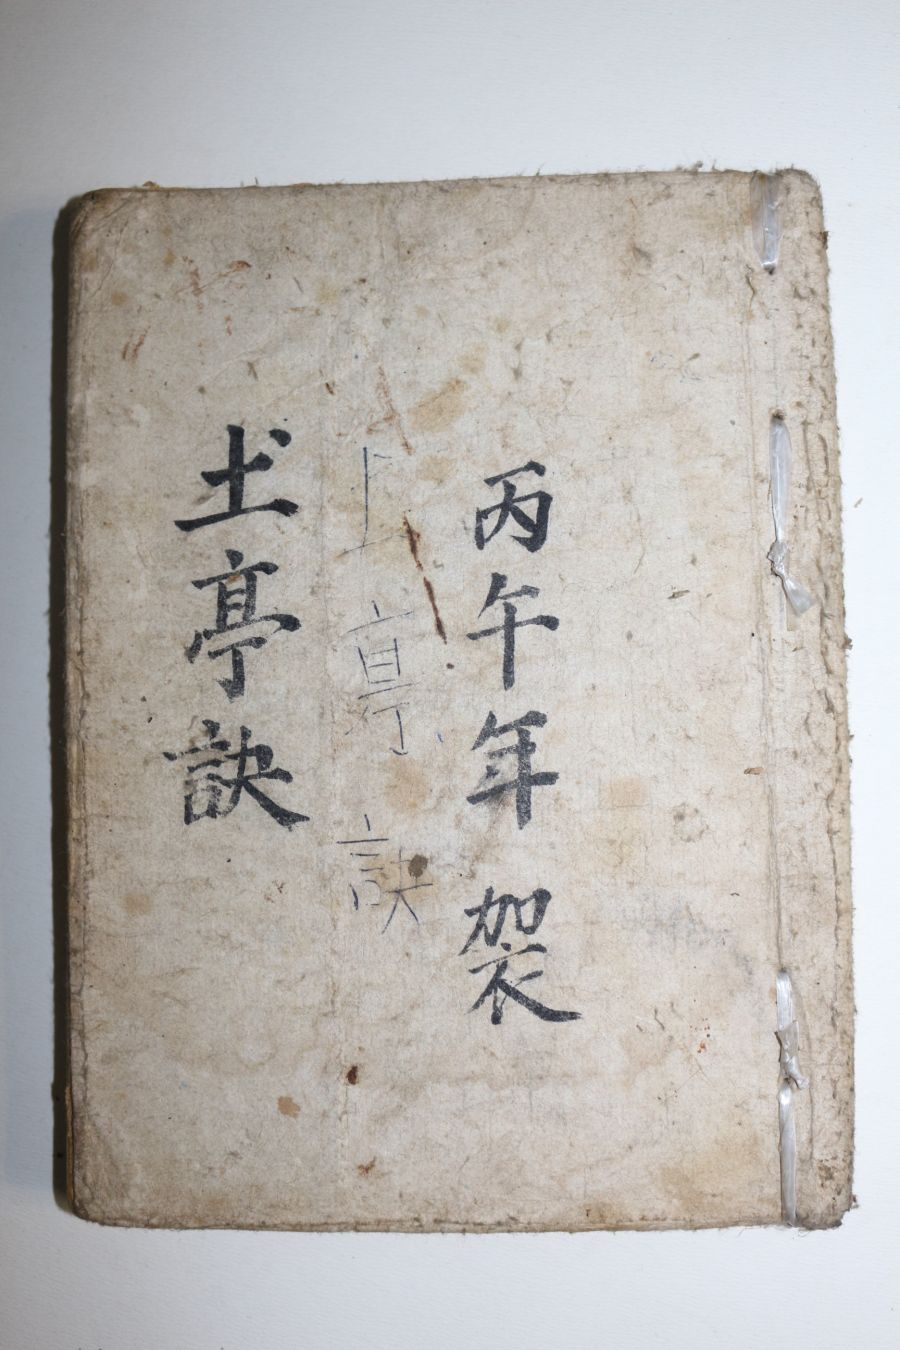 丙午年 袈
土亭訣
土亭訣